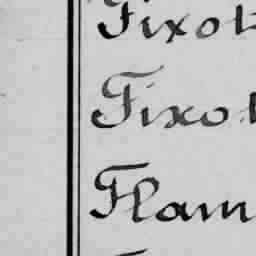 Fixot
Fixot
Flam